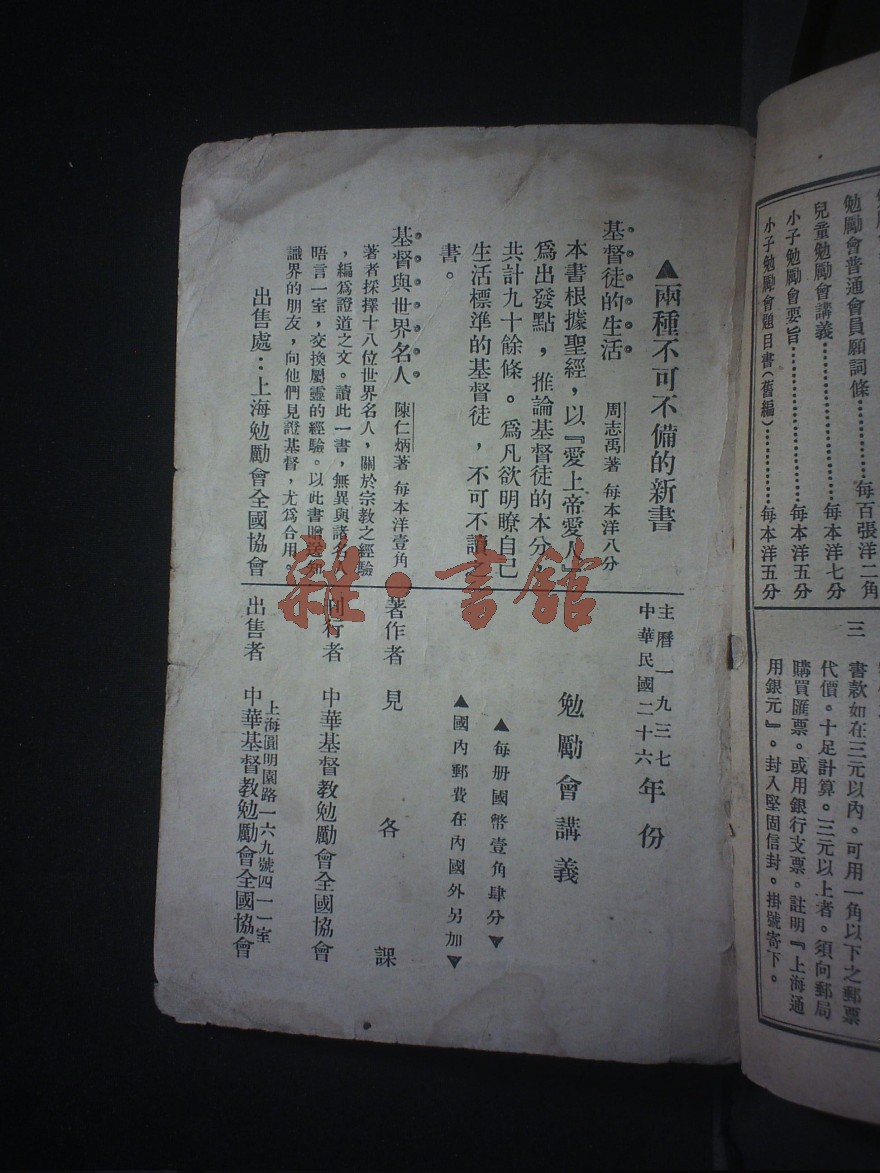 勉勵會普通會員願詞條……每百張洋二角
兒童勉勵會講義……每本洋七分
小子勉勵會要旨……每本洋五分
小子勉勵會題目書(舊編)……每本洋五分
三 書款如在三元以內。可用一角以下之郵票
代價。十足計算。三元以上者。須向郵局
購買匯票。或用銀行支票。註明『上海通
用銀元』。封入堅固信封。掛號寄下。
▲兩種不可不備的新書
基督徒的生活 周志禹著 每本洋八分
本書根據聖經,以『愛上帝愛人』
為出發點,推論基督徒的本分,
共計九十餘條。為凡欲明瞭自己
生活標準的基督徒,不可不讀之
書。
基督與世界名人 陳仁炳著 每本洋壹角
著者採擇十八位世界名人,關於宗教之經驗
,編為證道之文。讀此一書,無異與諸名人
晤言一室,交換屬靈的經驗。以此書贈送知
識界的朋友,向他們見證基督,尤為合用。
出售處:上海勉勵會全國協會
主曆一九三七
中華民國二十六
年份
勉勵會講義
▲每册國幣壹角肆分▼
▲國內郵費在內國外另加▼
著作者 見各課
刊行者 中華基督教勉勵會全國協會
上海圓明園路一六九號四一一室
出售者 中華基督教勉勵會全國協會
雜·書館